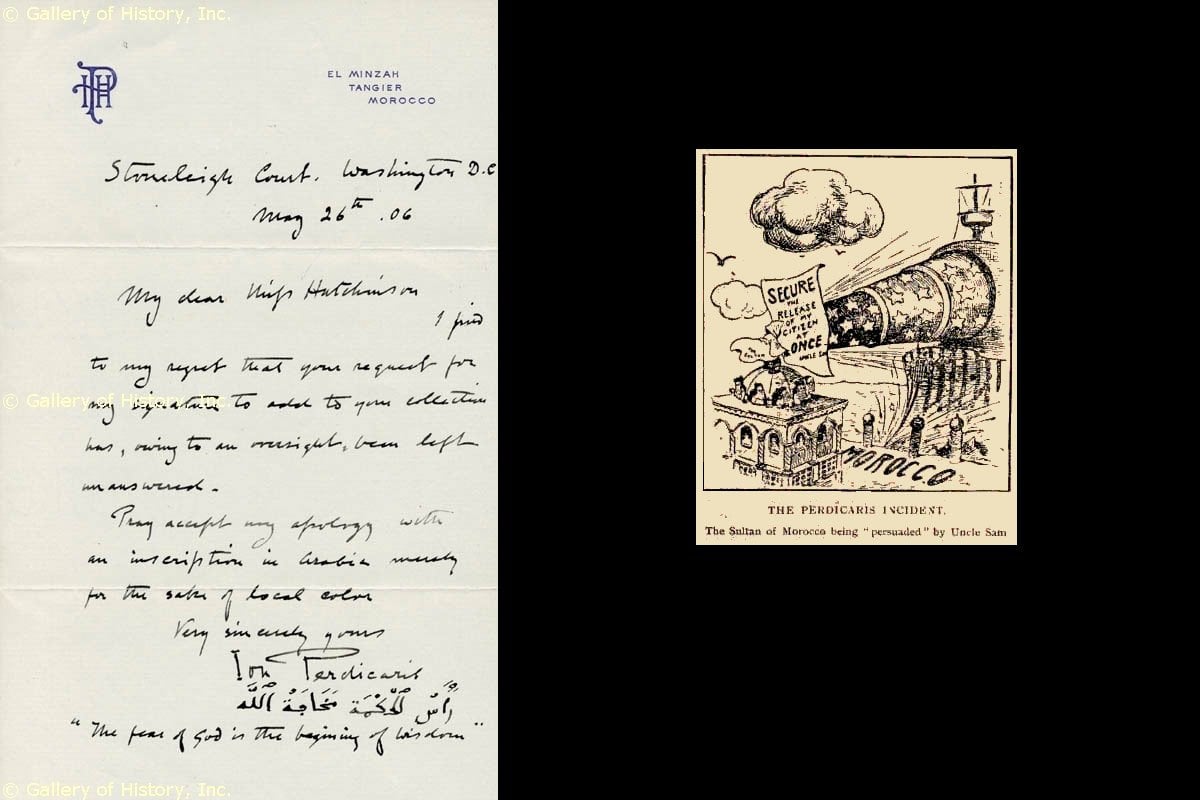 © Gallery of History, Inc.
PHH
EL MINZAH
TANGIER
MOROCCO
Stoneleigh Court. Washington D.C
May 26th .06
My dear Miss Hutchinson
I find
to my regret that your request for
my signature to add to your collection
© Gallery of History, Inc.
has, owing to an oversight, been left
unanswered.
Pray accept my apology with
an inscription in Arabic merely
for the sake of local color
Very sincerely yours
Ion Perdicaris
رَأْسُ الْحِكْمَة مَخَافَةُ اللّٰه
"The fear of God is the begining of wisdom"
© Gallery of History, Inc.
SECURE
THE
RELEASE
OF MY
CITIZEN
AT
ONCE
UNCLE SAM
MOROCCO
THE PERDICARIS INCIDENT.
The Sultan of Morocco being "persuaded" by Uncle Sam